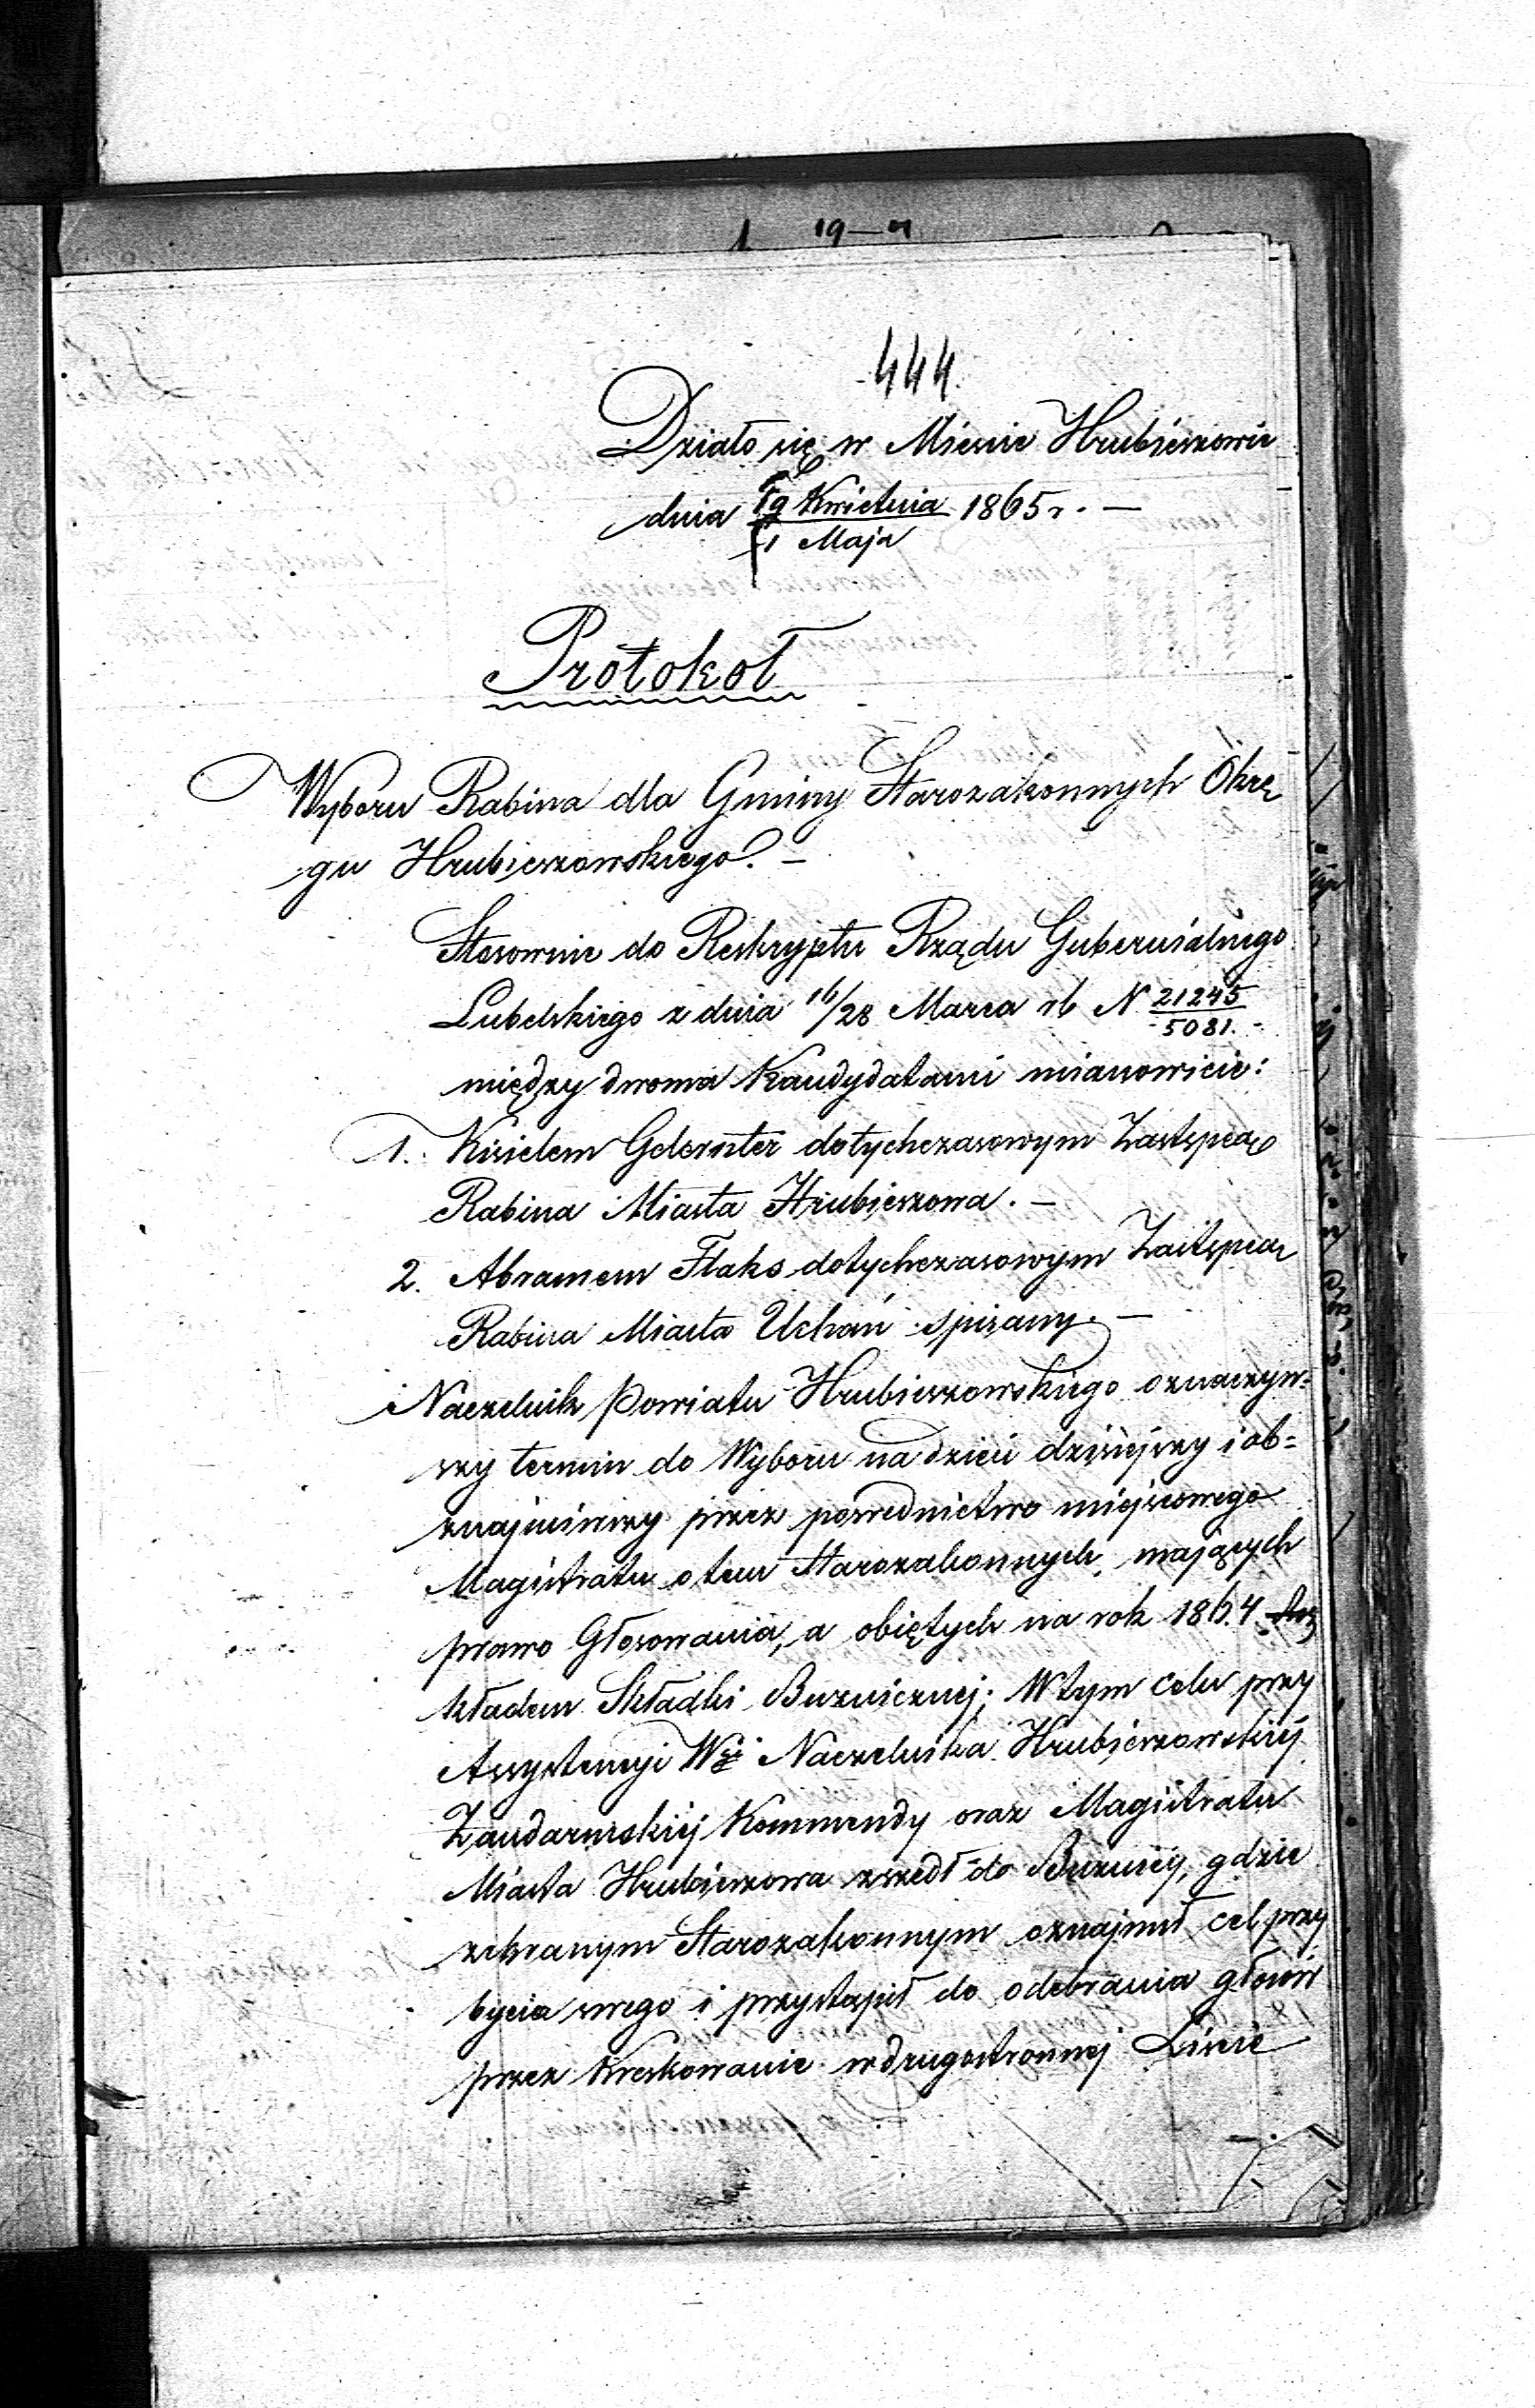 444.
Działo się w Mieście Hrubieszowie
dnia 19 Kwietnia 1865 r. —
1 Maja
Protokół
Wyboru Rabina dla Gminy Starozakonnych Okrę
gu Hrubieszowskiego. —
Stosownie do Reskryptu Rządu Gubernialnego
Lubelskiego z dnia 16/28 Marca rb N 21245/5081. -
między dwoma Kandydatami mianowicie:
1. Kisielem Gelernter dotychczasowym Zastępcą
Rabina Miasta Hrubieszowa. —
2. Abramem Flaks dotychczasowym Zastępcą
Rabina Miasta Uchań spisany. —
Naczelnik Powiatu Hrubieszowskiego oznaczyw=
szy termin do Wyboru na dzień dzisiejszy i ob=
znajmiwszy przez pośrednictwo miejscowego
Magistratu o tem Starozakonnych, mających
prawo Głosowania, a objętych na rok 1864
kładem Składki Bużnicznej; W tym celu przy
Assystencyi Naczelnika Hrubieszowskiej
Żandarmskiej Kommendy oraz Magistratu
Miasta Hrubieszowa zszedł do Bużnicy, gdzie
zebranym Starozakonnym oznajmił cel przy
bycia swego i przystąpił do odebrania głosów
przez Kreskowanie w drugostronnej Liście